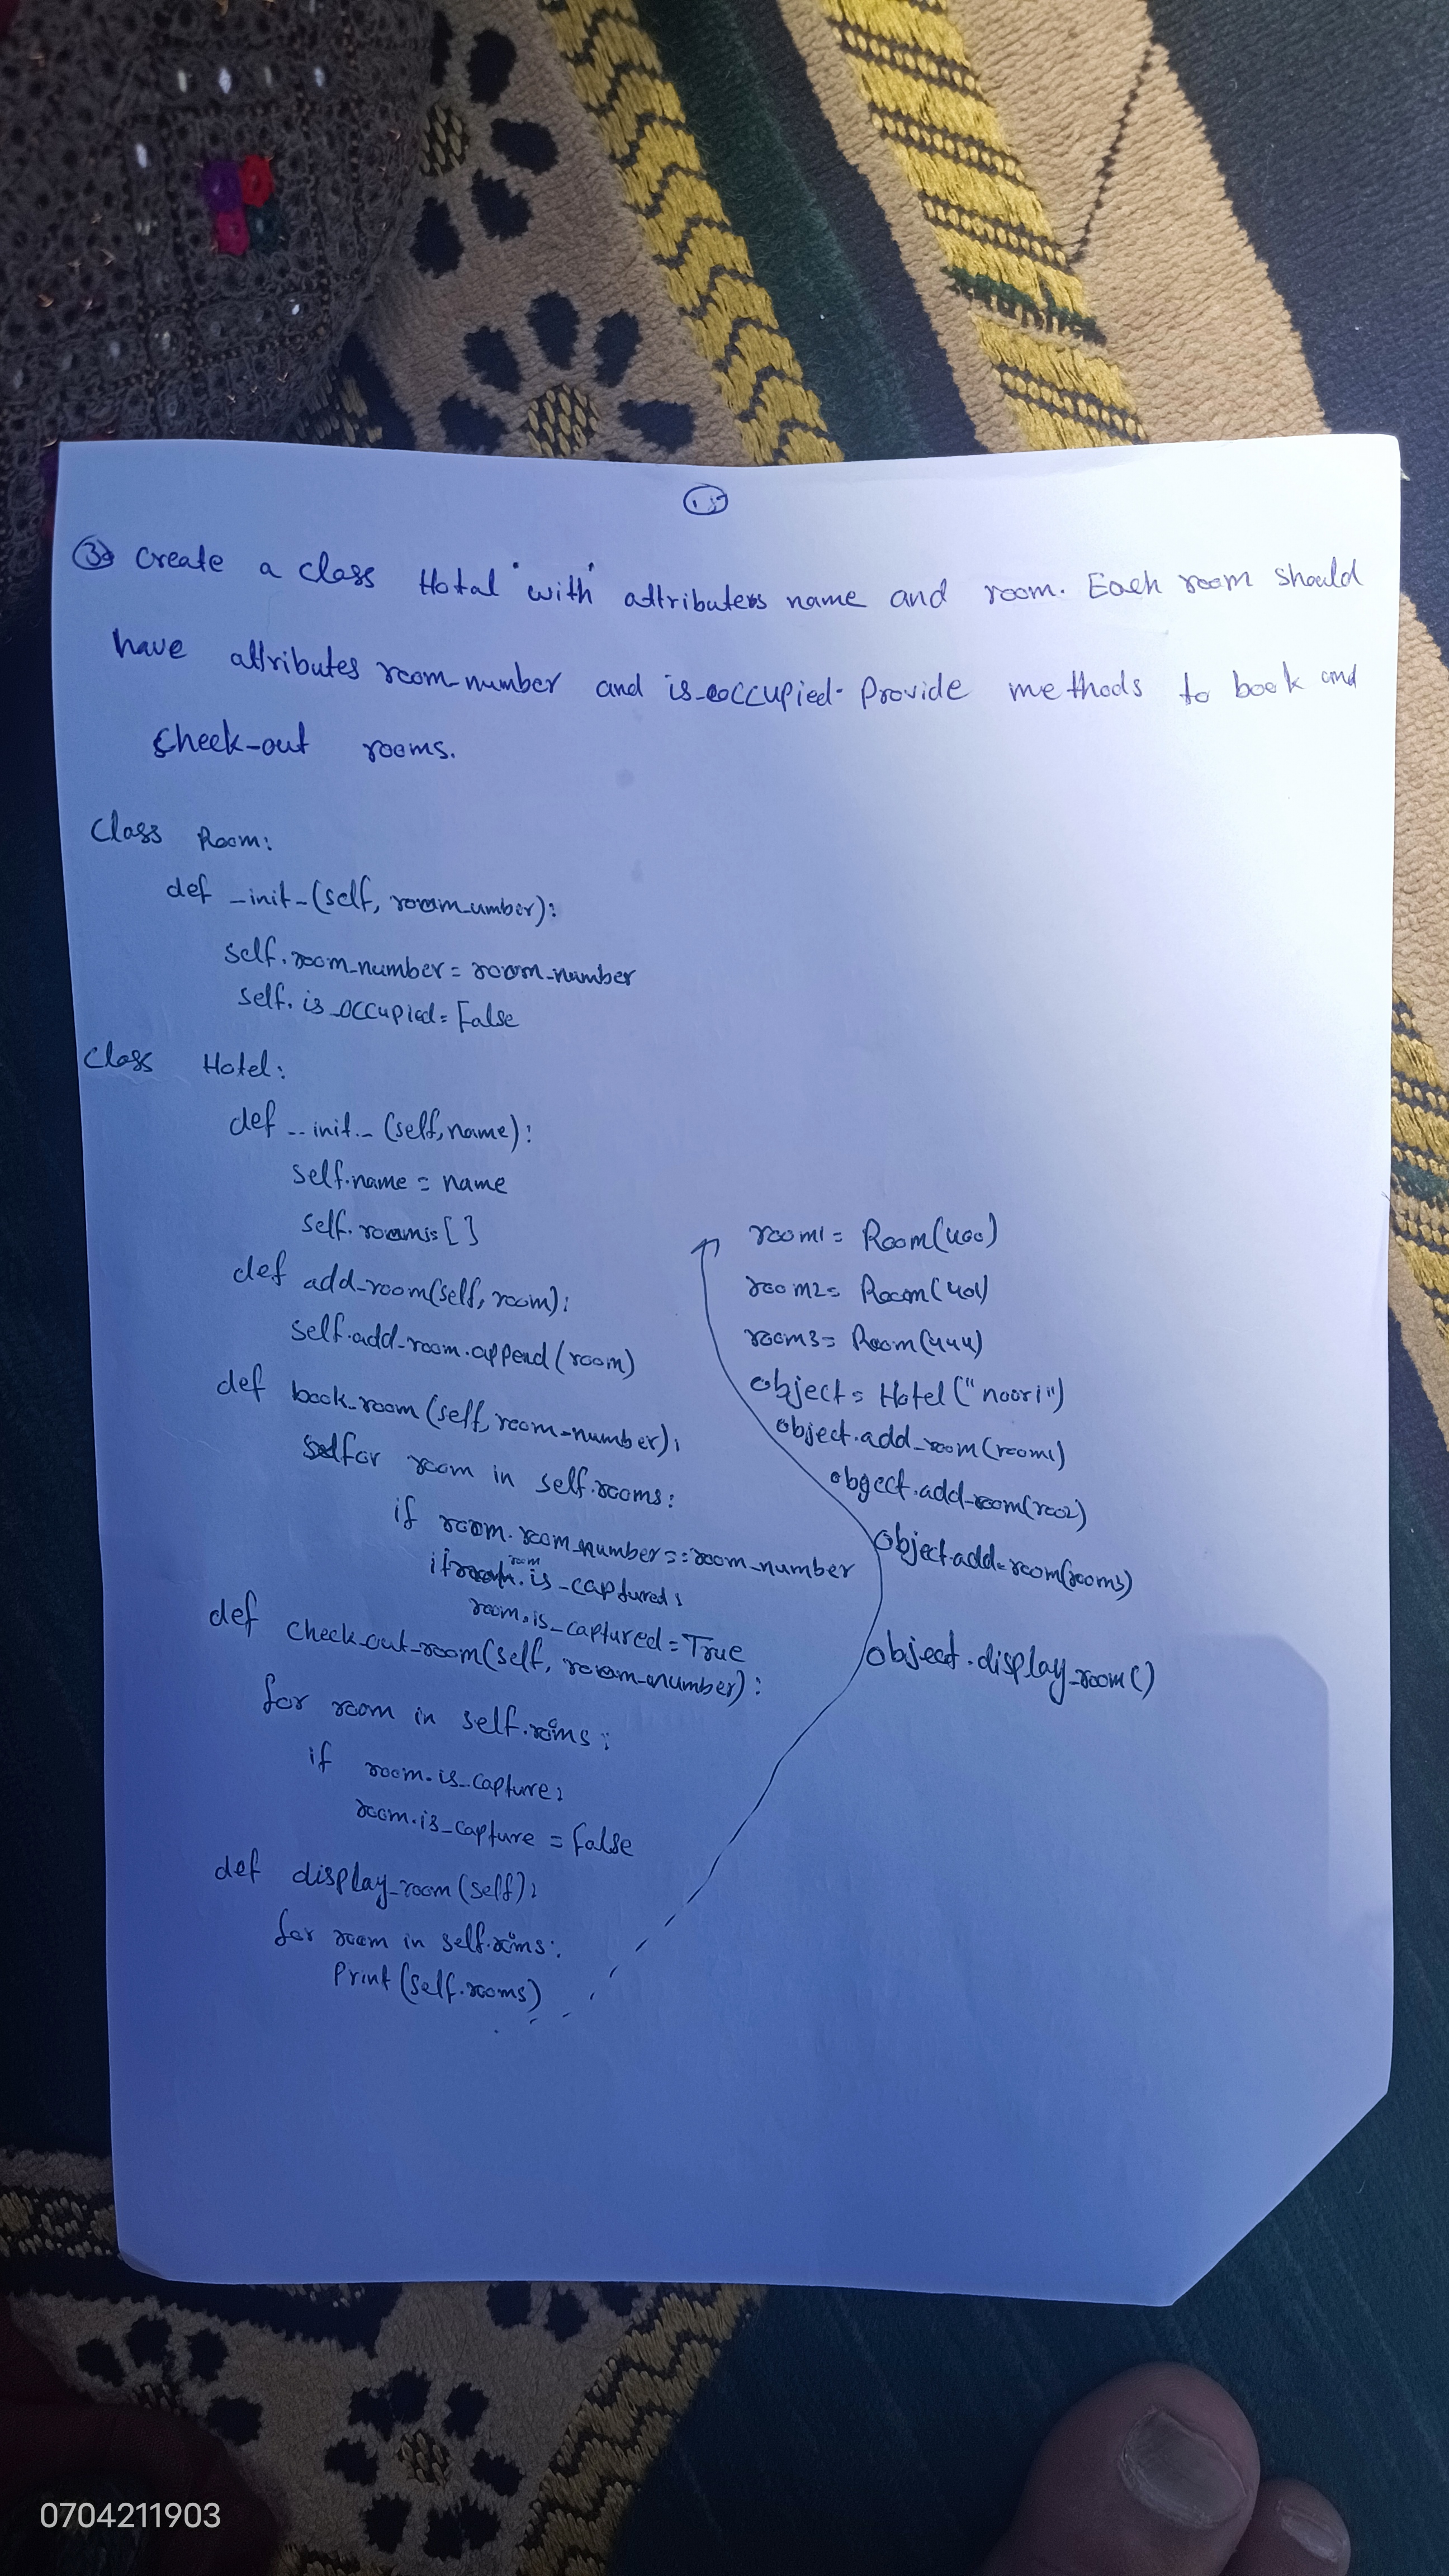 15
③ Create a class Hotal with attributes name and room. Each room should
have attributes room_number and is_occupied. Provide methods to book and
check-out rooms.
Class Room:
def _init_(self, room_umber):
self.room_number = room_number
self.is_occupied = False
Class Hotel:
def __init__(self, name):
self.name = name
self.rooms = []
def add_room(self, room):
self.add_room.append(room)
def book_room(self, room_number):
for room in self.rooms:
if room.room_number == room_number
if room.is_captured:
room.is_captured = True
def check_out_room(self, room_number):
for room in self.rooms:
if room.is_capture:
room.is_capture = False
def display_room(self):
for room in self.rooms:
Print(self.rooms)
room1 = Room(400)
room2 = Room(401)
room3 = Room(444)
object = Hotel("noori")
object.add_room(room1)
obgect.add_room(roo2)
object.add_room(room3)
object.display_room()
0704211903